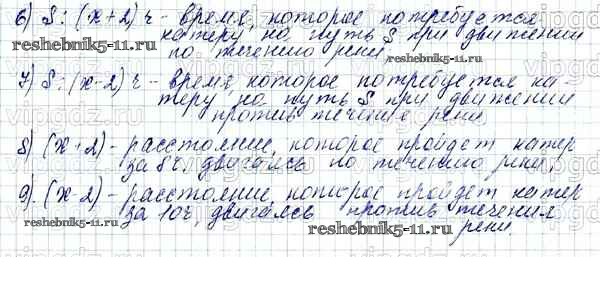 6) S : (x+2) ч - время, которое потребуется
катеру на путь S при движении
по течению реки.
reshebnik5-11.ru
7) S : (x-2) ч - время, которое потребуется ка-
теру на путь S при движении
против течения реки.
vipgdz.ru
8) (x+2) - расстояние, которое пройдет катер
за 8ч, двигаясь по течению реки,
reshebnik5-11.ru
9). (x-2) - расстояние, которое пройдет катер
за 10ч, двигаясь против течения
реки
reshebnik5-11.ru
reshebnik5-11.ru